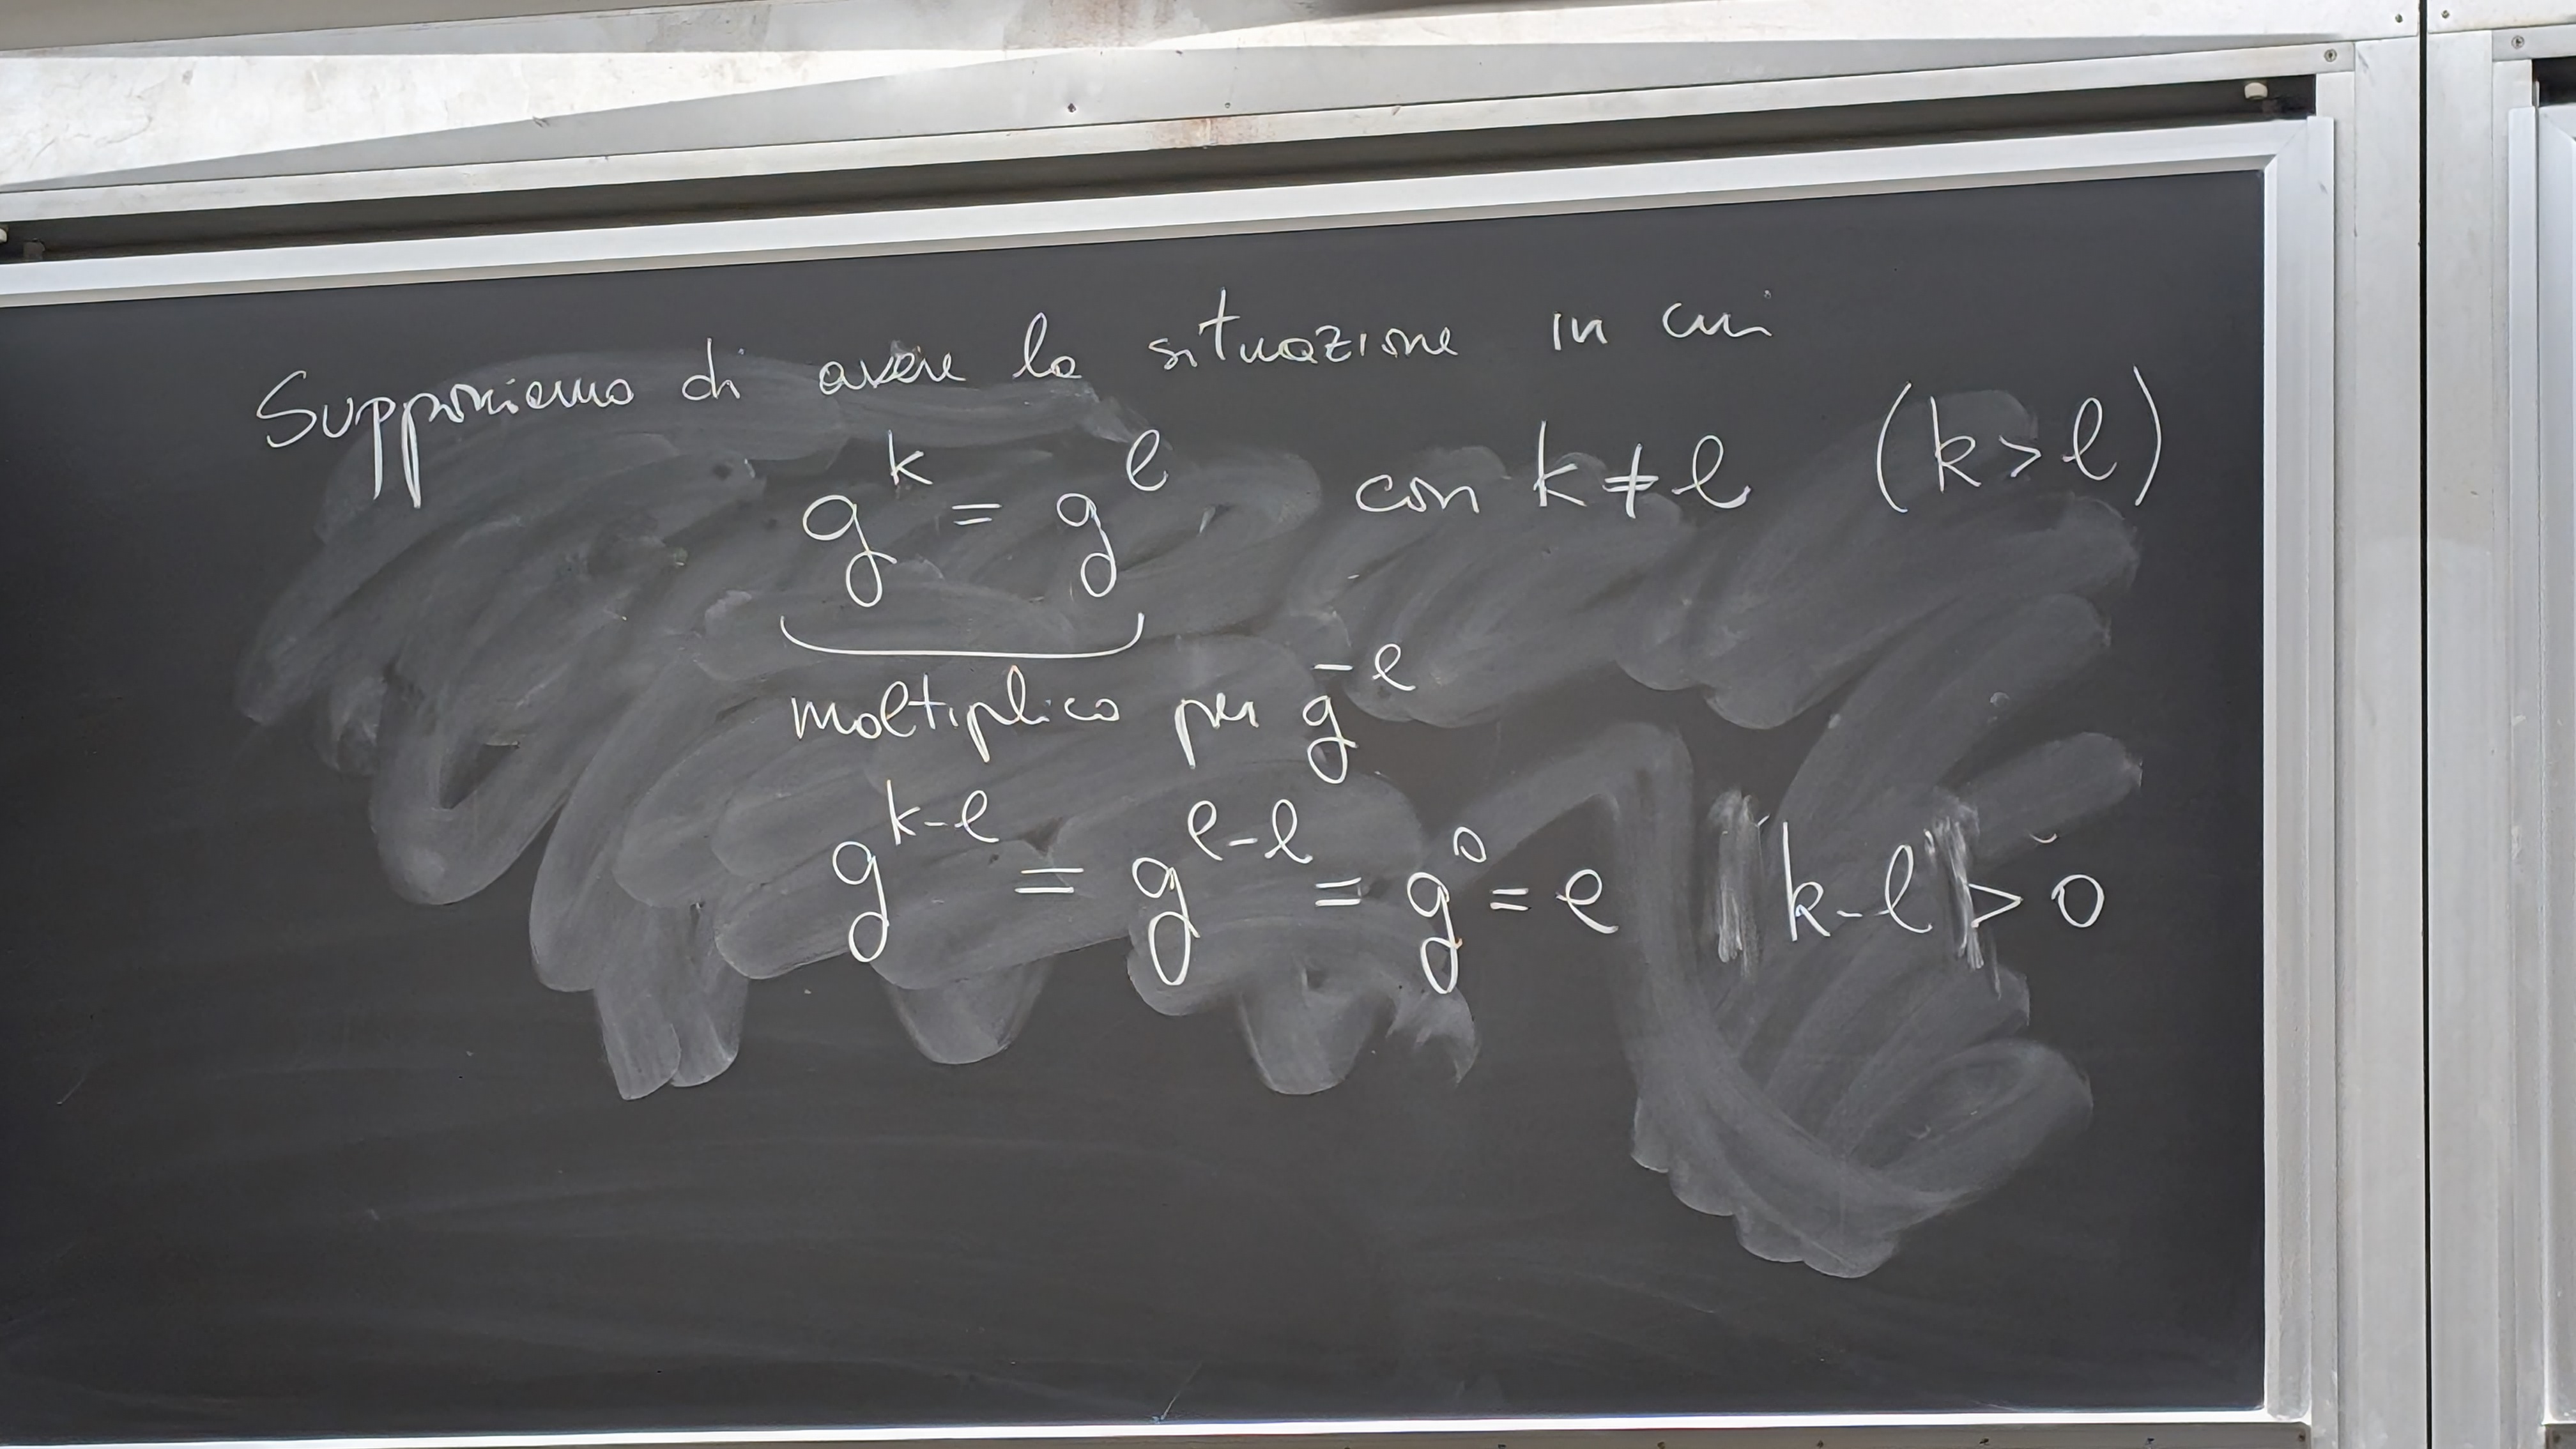 Supponiamo di avere la situazione in cui
g^k = g^l con k ≠ l (k > l)
moltiplico per g^-l
g^k-l = g^l-l = g^0 = e k-l > 0